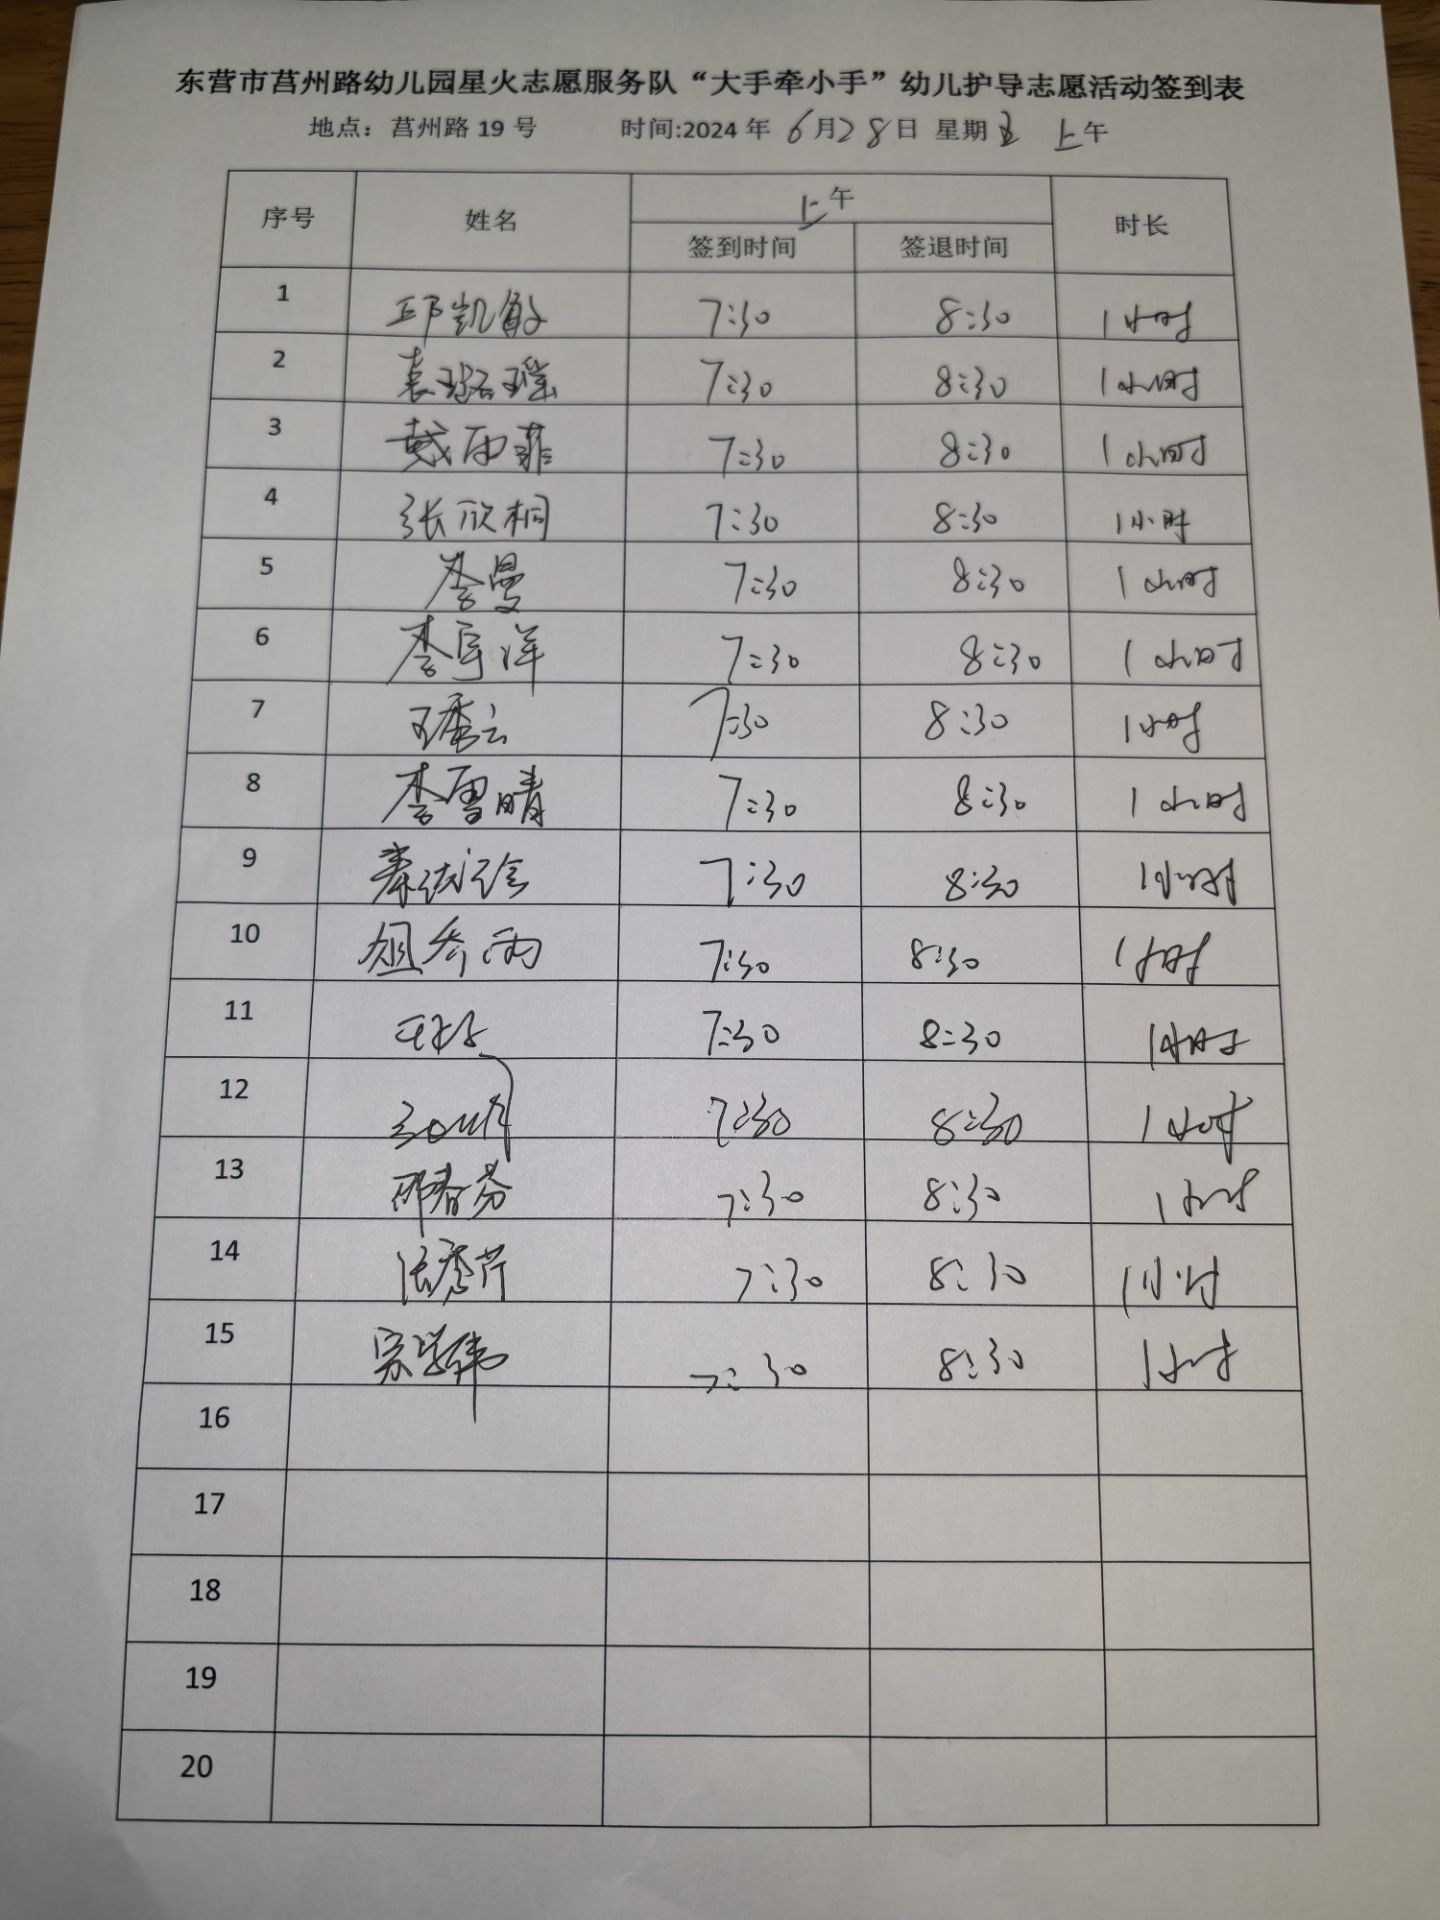 东营市莒州路幼儿园星火志愿服务队“大手牵小手”幼儿护导志愿活动签到表
地点：莒州路 19 号 时间:2024 年 6月28日 星期五 上午
序号 姓名 上午 时长
签到时间 签退时间
1 邱凯敏 7:30 8:30 1小时
2 袁璐瑶 7:30 8:30 1小时
3 戴雨菲 7:30 8:30 1小时
4 张欣桐 7:30 8:30 1小时
5 李曼 7:30 8:30 1小时
6 李宇洋 7:30 8:30 1小时
7 王秀云 7:30 8:30 1小时
8 李雪晴 7:30 8:30 1小时
9 7:30 8:30 1小时
10 7:30 8:30 1小时
11 7:30 8:30 1小时
12 7:30 8:30 1小时
13 邢春芬 7:30 8:30 1小时
14 张秀芹 7:30 8:30 1小时
15 宋学伟 7:30 8:30 1小时
16
17
18
19
20